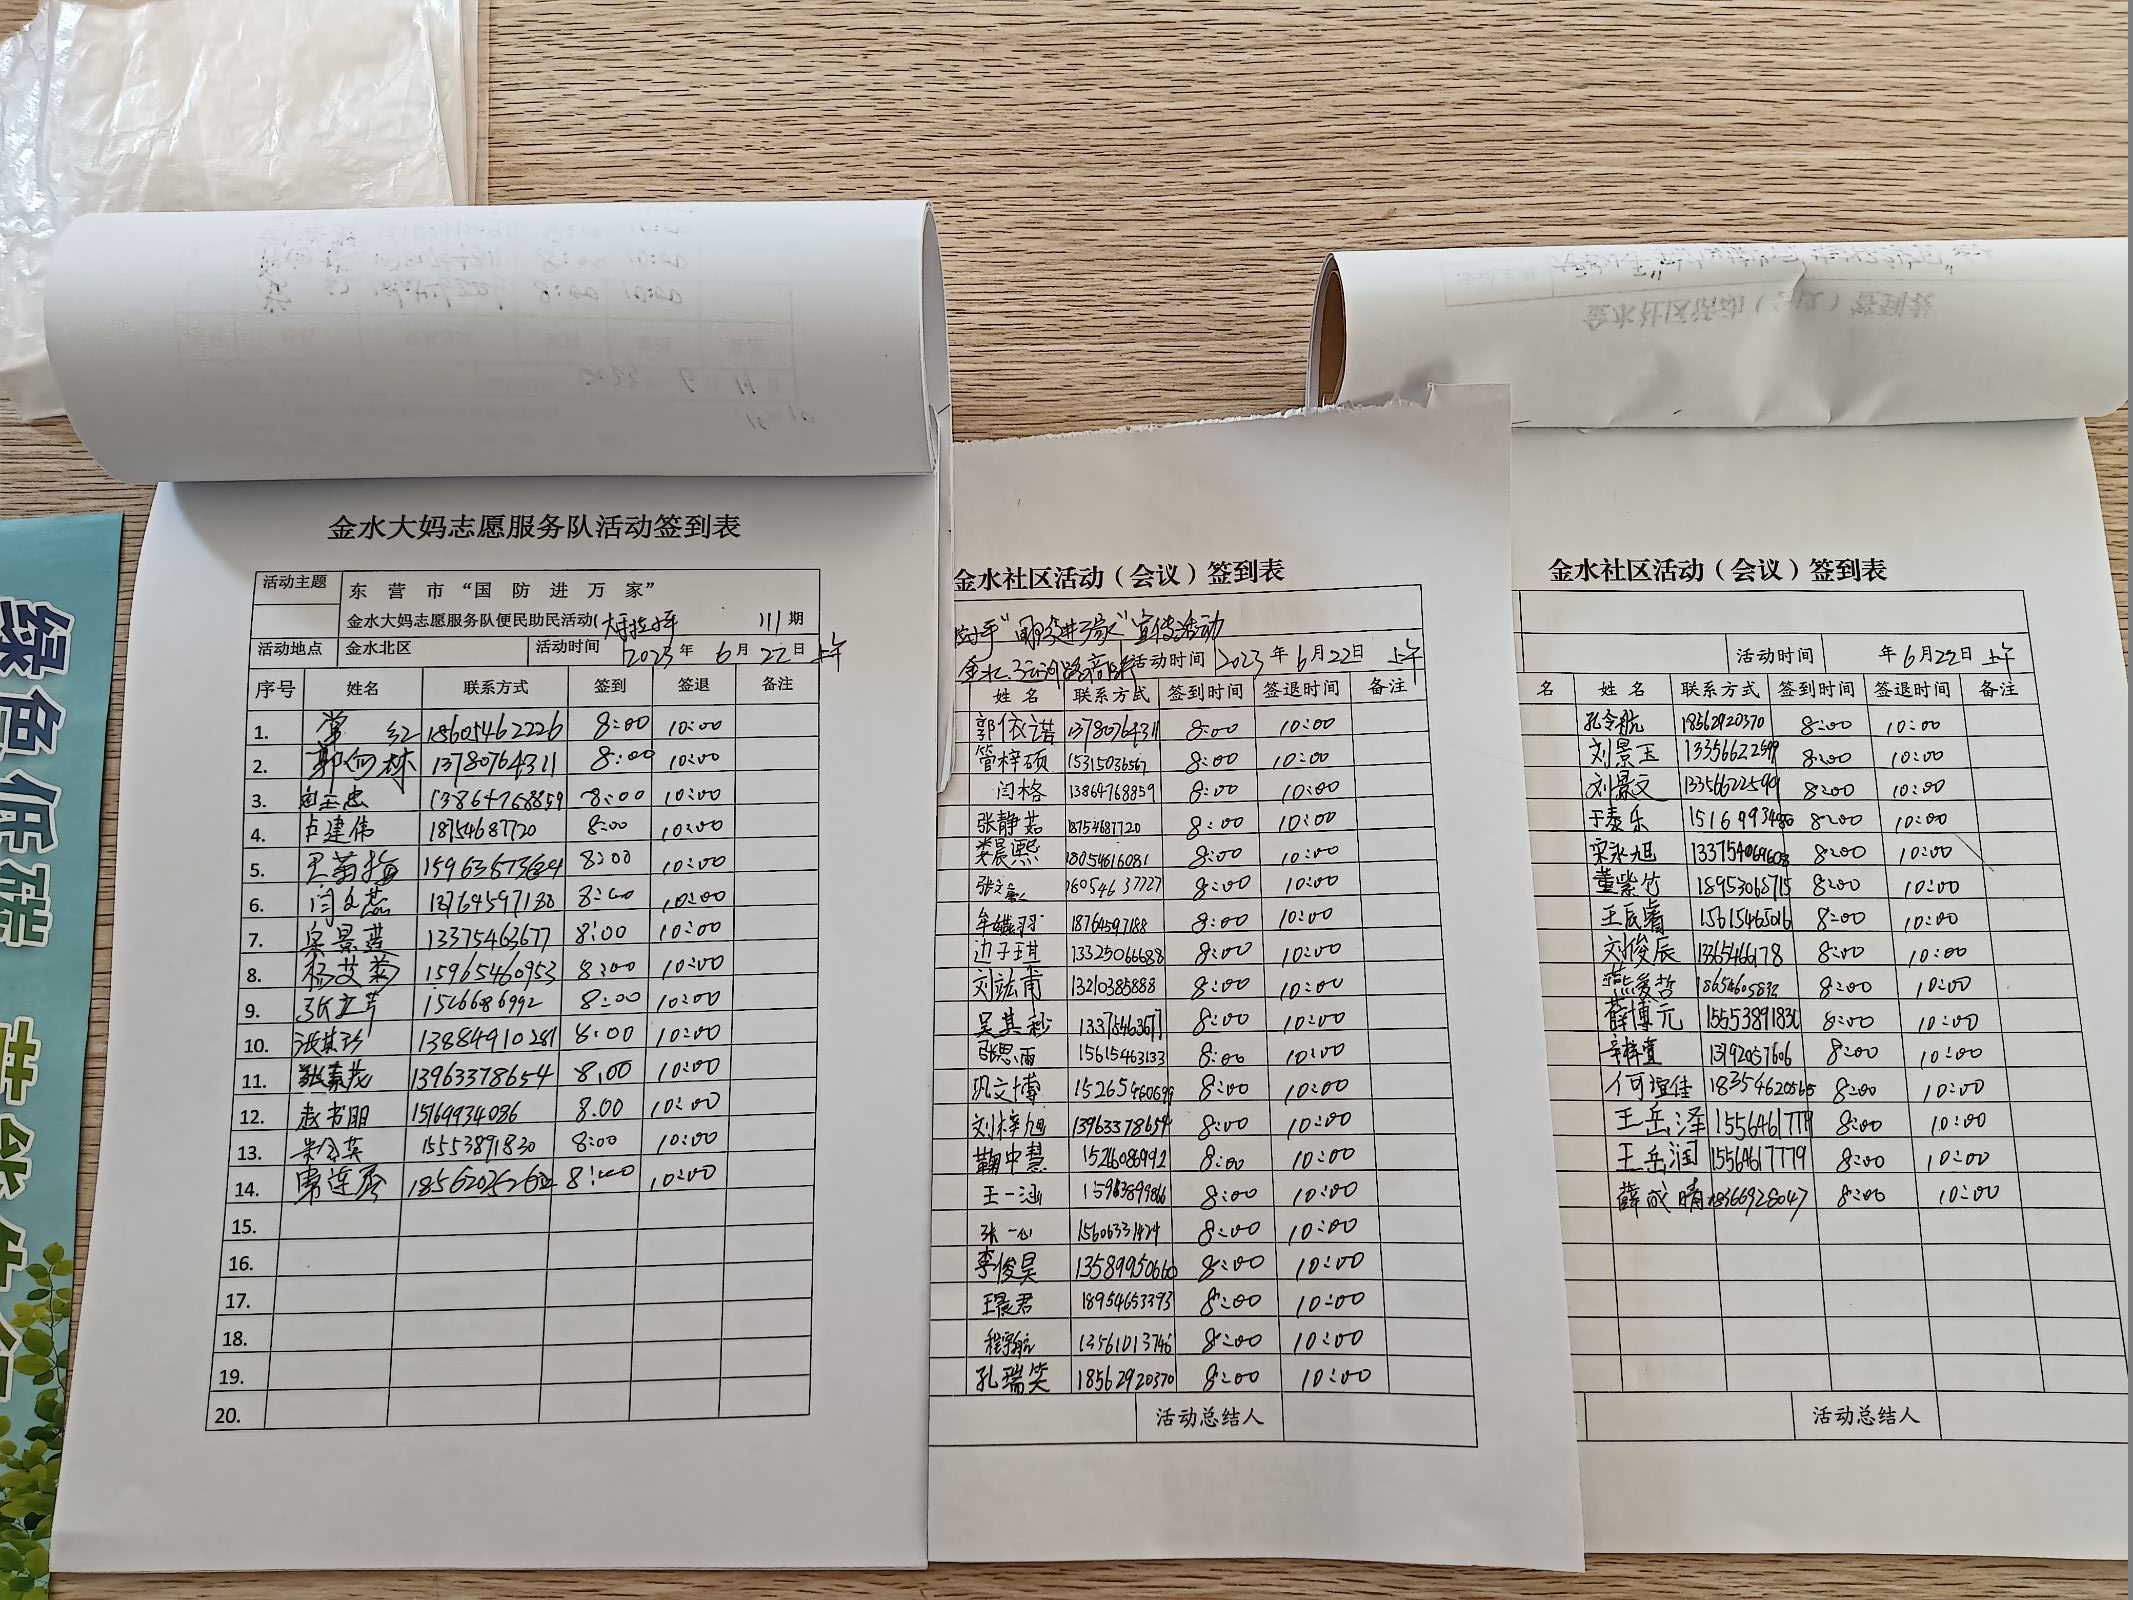 绿色低碳
金水大妈志愿服务队活动签到表
活动主题 东营市“国防进万家”
金水大妈志愿服务队便民助民活动( 大手拉小手 111期
活动地点 金水北区 活动时间 2023年6月22日上午
序号 姓名 联系方式 签到 签退 备注
1. 常红 18605462226 8:00 10:00
2. 13780764311 8:00 10:00
3. 13864768859 8:00 10:00
4. 卢建伟 18754687720 8:00 10:00
5. 8:00 10:00
6. 闫文燕 18764597188 8:00 10:00
7. 13375463677 8:00 10:00
8. 杨艾菊 15965460953 8:00 10:00
9. 张立芹 8:00 10:00
10. 13884910281 8:00 10:00
11. 13963378654 8.00 10:00
12. 赵书明 15169934086 8.00 10:00
13. 15553891830 8:00 10:00
14. 8:00 10:00
15.
16.
17.
18.
19.
20.
金水社区活动（会议）签到表
手“国防进万家”宣传活动
活动时间 2023年6月22日 上午
姓名 联系方式 签到时间 签退时间 备注
郭依诺 13780764311 8:00 10:00
管梓硕 15315036567 8:00 10:00
闫格 13864768859 8:00 10:00
张静茹 18754687720 8:00 10:00
娄晨熙 18054616081 8:00 10:00
18054637727 8:00 10:00
18764597188 8:00 10:00
边子琪 13325066688 8:00 10:00
刘竑甫 13210385888 8:00 10:00
8:00 10:00
张思雨 15615463133 8:00 10:00
巩文博 15265460699 8:00 10:00
刘梓旭 13963378654 8:00 10:00
鞠中慧 8:00 10:00
王一涵 15963899866 8:00 10:00
张一心 15606331424 8:00 10:00
李俊昊 13589950660 8:00 10:00
王晨君 18954653393 8:00 10:00
程宇航 13561013746 8:00 10:00
孔瑞笑 18562920370 8:00 10:00
活动总结人
金水社区活动（会议）签到表
活动时间 年6月22日 上午
名 姓名 联系方式 签到时间 签退时间 备注
孔令航 18562920370 8:00 10:00
刘景玉 13356622599 8:00 10:00
刘景文 13356622599 8:00 10:00
于泰乐 8:00 10:00
宋永旭 8:00 10:00
董紫竹 18953068715 8:00 10:00
王辰睿 15615465016 8:00 10:00
刘俊辰 8:00 10:00
燕爱哲 8:00 10:00
薛博元 15553891830 8:00 10:00
13792057606 8:00 10:00
18354620565 8:00 10:00
王岳泽 15564617779 8:00 10:00
王岳润 15564617779 8:00 10:00
薛成晴 18366928047 8:00 10:00
活动总结人